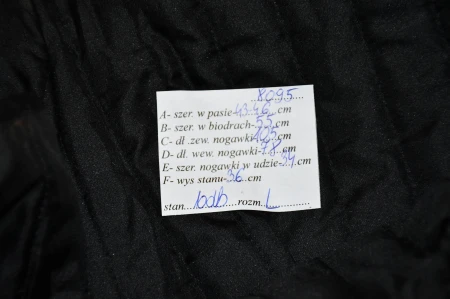 8095
A- szer. w pasie-43-46...cm
B- szer. w biodrach-55.cm
C- dł .zew. nogawki-105.cm
D- dł. wew. nogawki-78...cm
E- szer. nogawki w udzie-34cm
F- wys stanu-36...cm
stan...bdb...rozm.L............